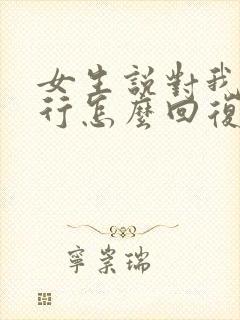 女生說對我
行怎麼回復
寧崇瑞